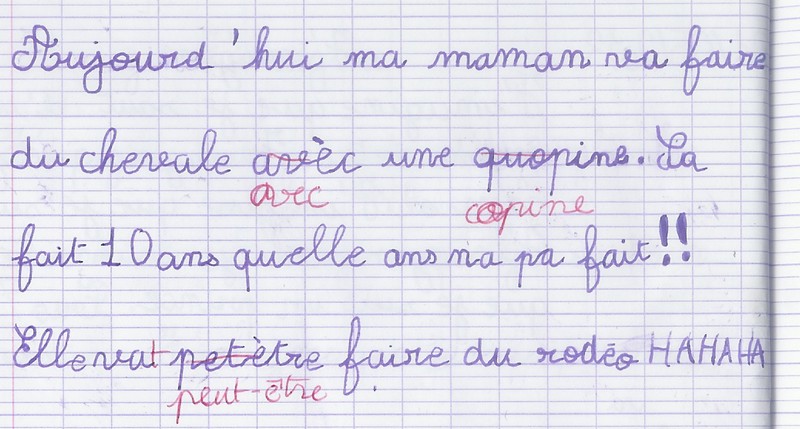 Aujourd'hui ma maman va faire
du chevale avèc une quopine. La
avec copine
fait 10 ans quelle ans na pa fait!!
Elle vat petètre faire du rodéo HAHAHA
peut-être